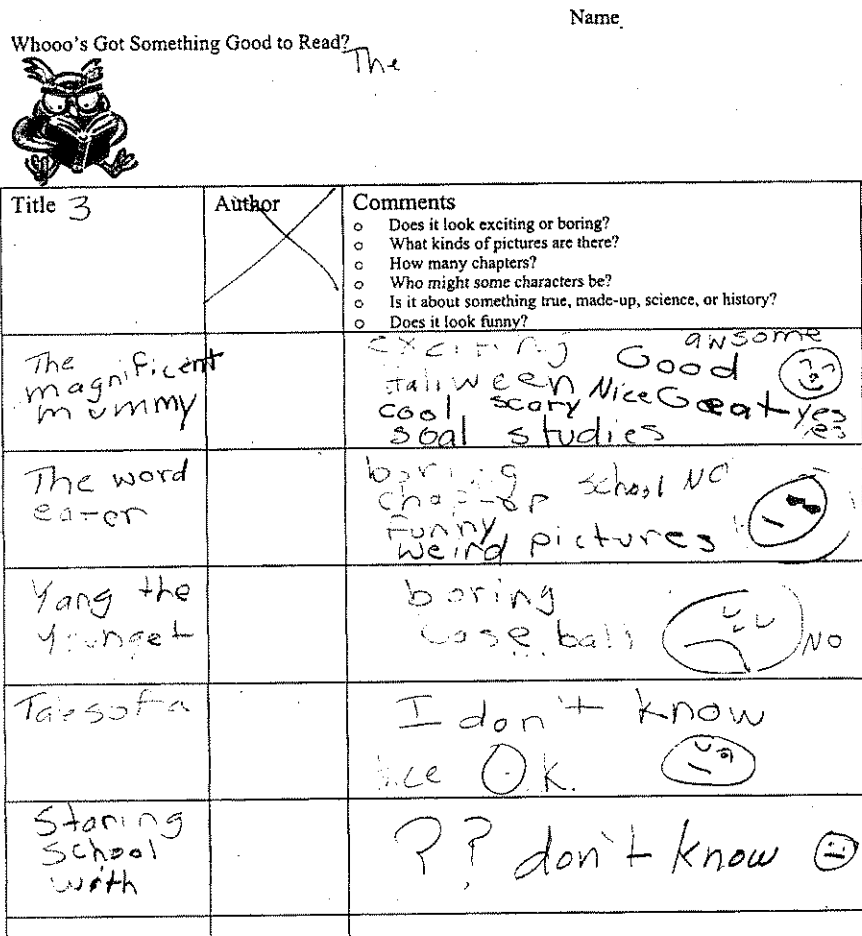 Name
Whooo's Got Something Good to Read?
The
Title 3
Author
Comments
o Does it look exciting or boring?
o What kinds of pictures are there?
o How many chapters?
o Who might some characters be?
o Is it about something true, made-up, science, or history?
o Does it look funny?
The
magnificent
mummy
exciting awsome
Good
Nice Great yes
cool scary yes
soal studies
The word
eater
boring school NO
funny
weird pictures
Yang the
boring
ball NO
I don't know
O.k.
Staring
school
with
?? don't know